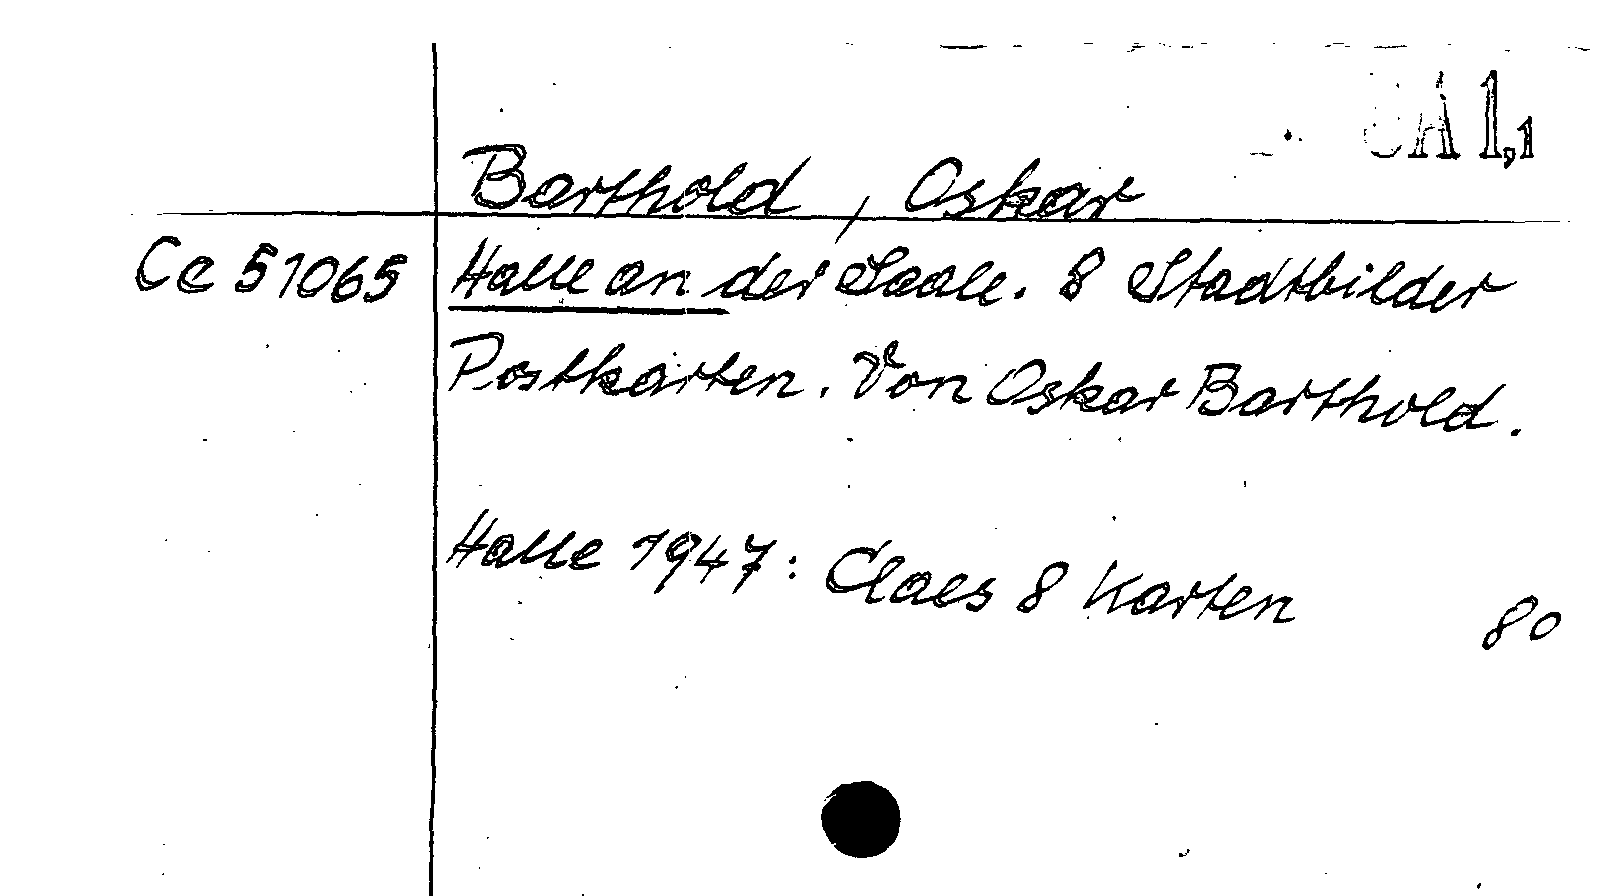 Barthold, Oskar
Ce 51065 Halle an der Saale. 8 Stadtbilder
Postkarten. Von Oskar Barthold.
Halle 1947: Claes 8 Karten
80